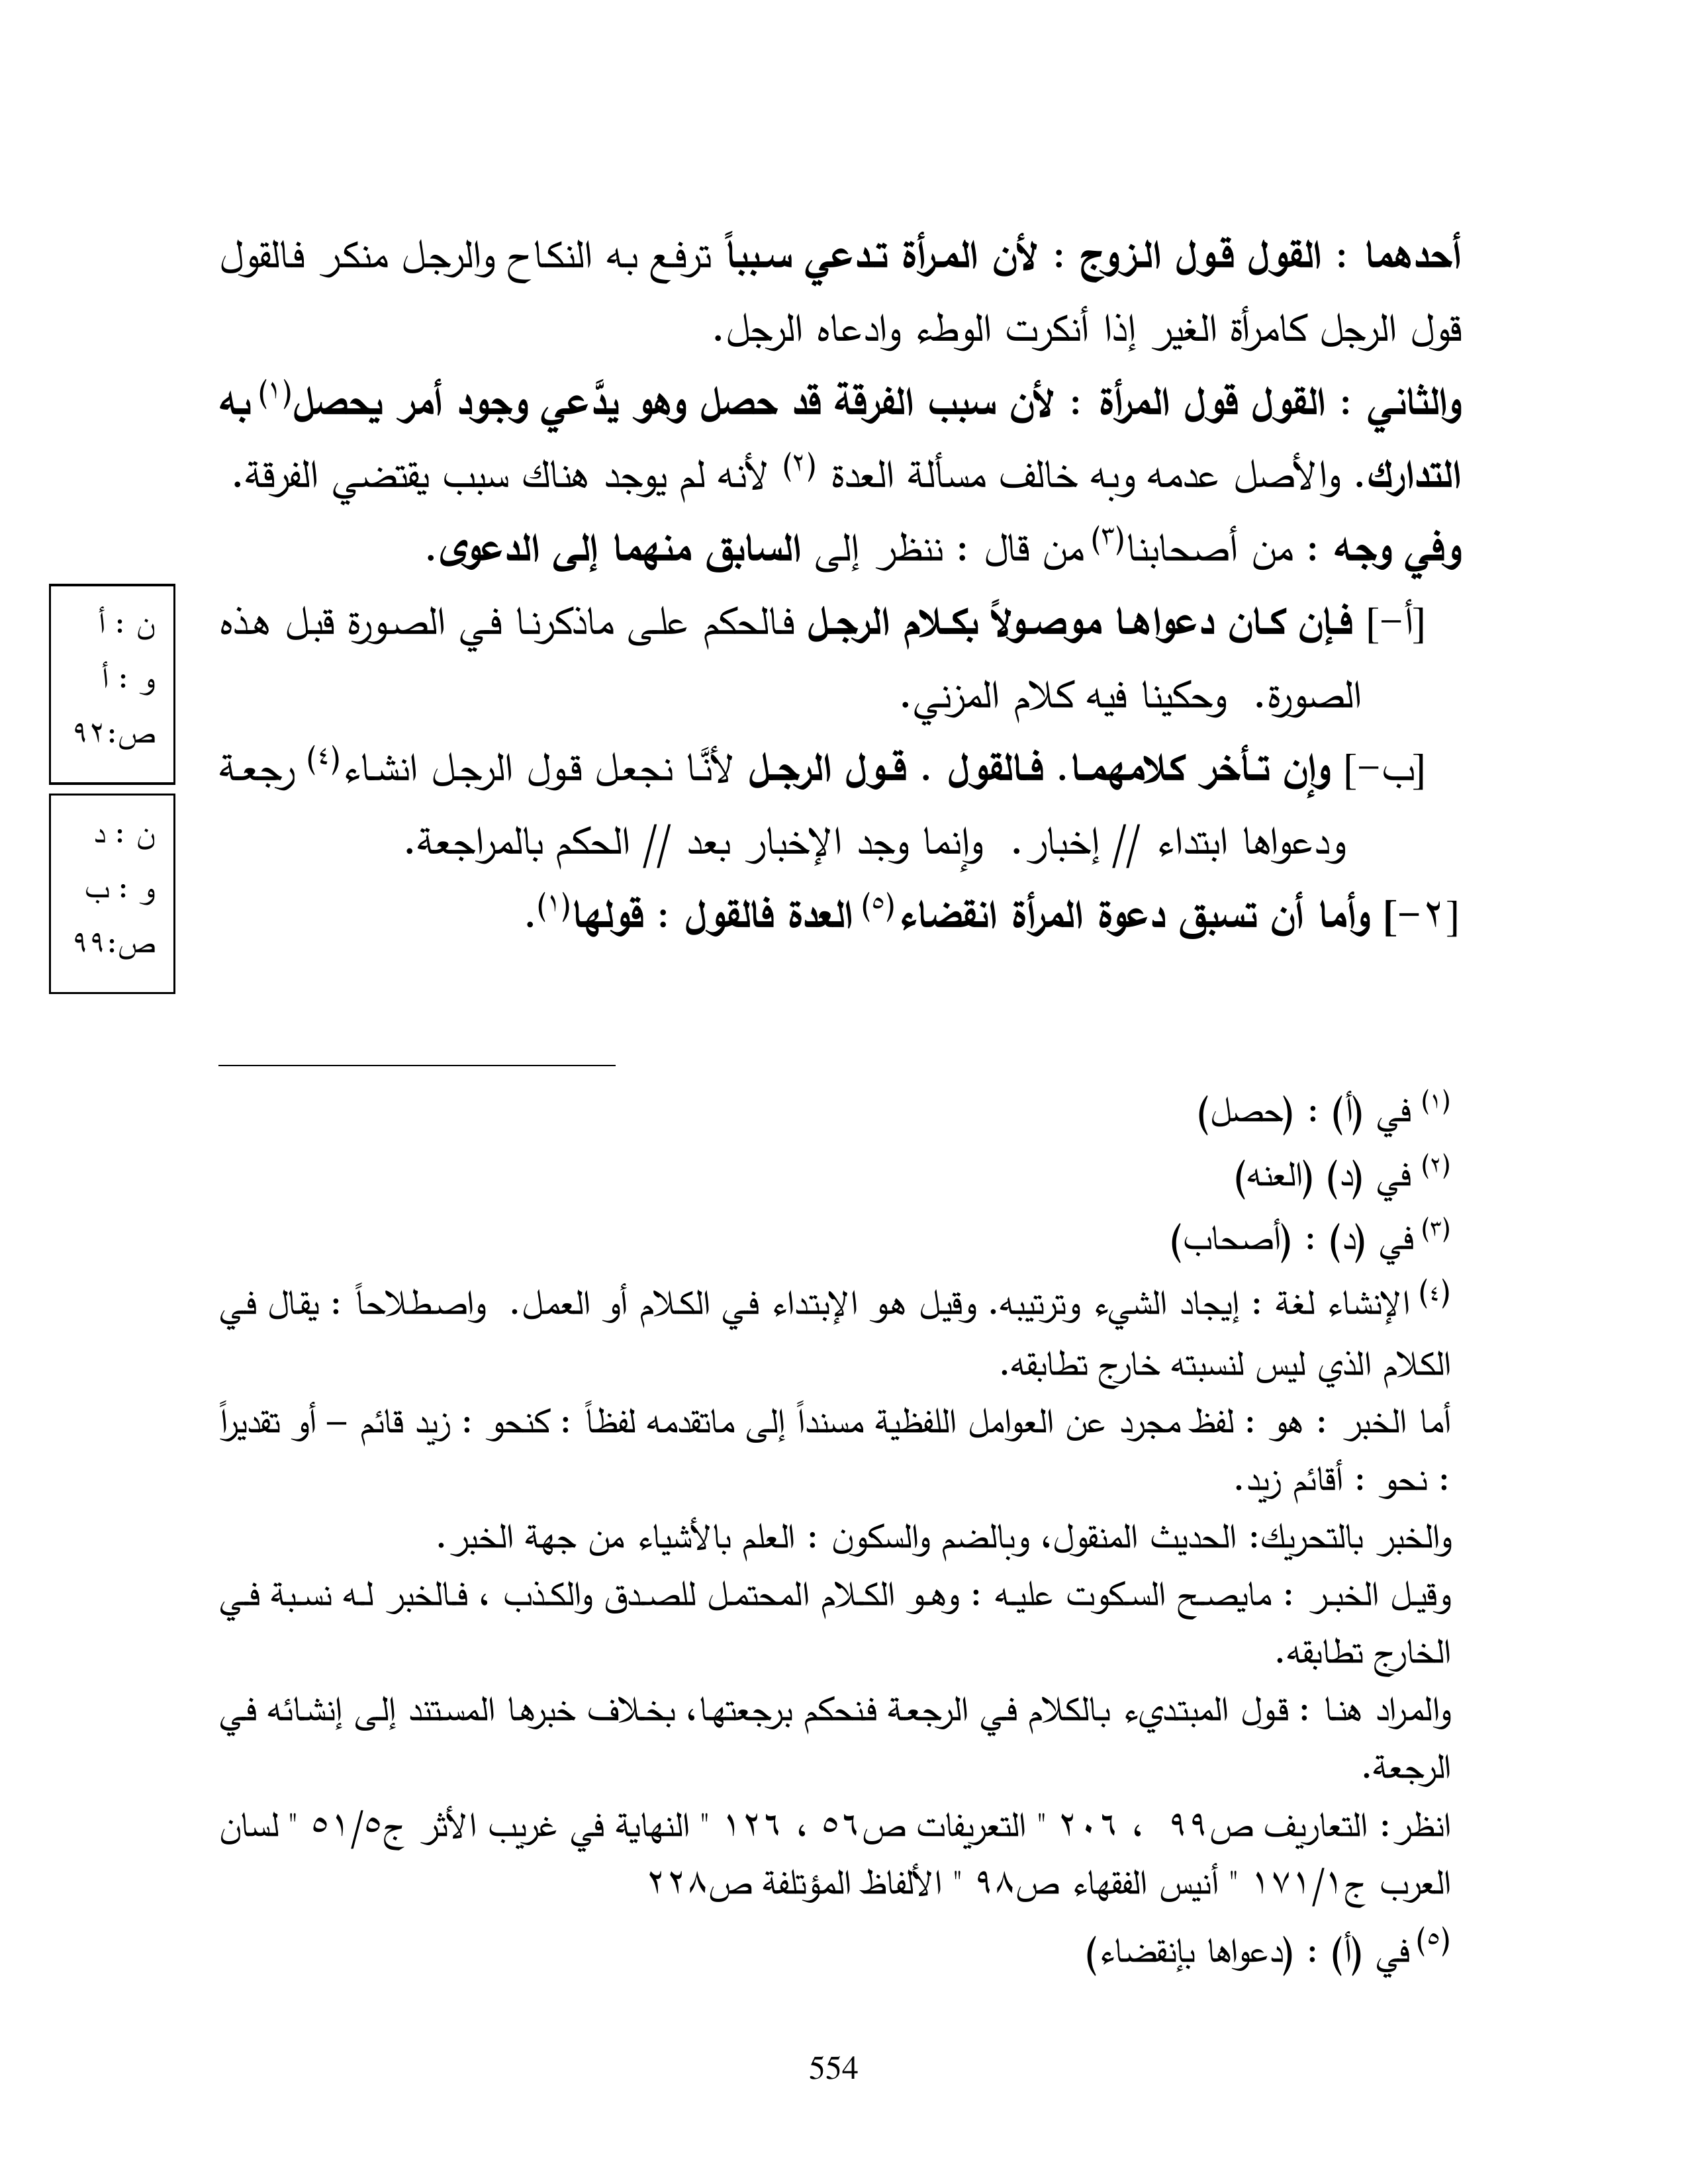 أحدهما : القول قول الزوج : لأن المرأة تدعي سبباً ترفع به النكاح والرجل منكر فالقول
قول الرجل كامرأة الغير إذا أنكرت الوطء وادعاه الرجل.
والثاني : القول قول المرأة : لأن سبب الفرقة قد حصل وهو يدَّعي وجود أمر يحصل(١) به
التدارك. والأصل عدمه وبه خالف مسألة العدة (٢) لأنه لم يوجد هناك سبب يقتضي الفرقة.
وفي وجه : من أصحابنا(٣) من قال : ننظر إلى السابق منهما إلى الدعوى.
[أ-] فإن كان دعواها موصولاً بكلام الرجل فالحكم على ماذكرنا في الصورة قبل هذه
الصورة. وحكينا فيه كلام المزني.
[ب-] وإن تأخر كلامهما. فالقول . قول الرجل لأنَّا نجعل قول الرجل انشاء(٤) رجعة
ودعواها ابتداء // إخبار. وإنما وجد الإخبار بعد // الحكم بالمراجعة.
[٢-] وأما أن تسبق دعوة المرأة انقضاء(٥) العدة فالقول : قولها(١).
ن : أ
و : أ
ص:٩٢
ن : د
و : ب
ص:٩٩
(١) في (أ) : (حصل)
(٢) في (د) (العنه)
(٣) في (د) : (أصحاب)
(٤) الإنشاء لغة : إيجاد الشيء وترتيبه. وقيل هو الإبتداء في الكلام أو العمل. واصطلاحاً : يقال في
الكلام الذي ليس لنسبته خارج تطابقه.
أما الخبر : هو : لفظ مجرد عن العوامل اللفظية مسنداً إلى ماتقدمه لفظاً : كنحو : زيد قائم – أو تقديراً
: نحو : أقائم زيد.
والخبر بالتحريك: الحديث المنقول، وبالضم والسكون : العلم بالأشياء من جهة الخبر.
وقيل الخبر : مايصح السكوت عليه : وهو الكلام المحتمل للصدق والكذب ، فالخبر له نسبة في
الخارج تطابقه.
والمراد هنا : قول المبتديء بالكلام في الرجعة فنحكم برجعتها، بخلاف خبرها المستند إلى إنشائه في
الرجعة.
انظر: التعاريف ص٩٩ ، ٢٠٦ " التعريفات ص٥٦ ، ١٢٦ " النهاية في غريب الأثر ج٥١/٥ " لسان
العرب ج١٧١/١ " أنيس الفقهاء ص٩٨ " الألفاظ المؤتلفة ص٢٢٨
(٥) في (أ) : (دعواها بإنقضاء)
554